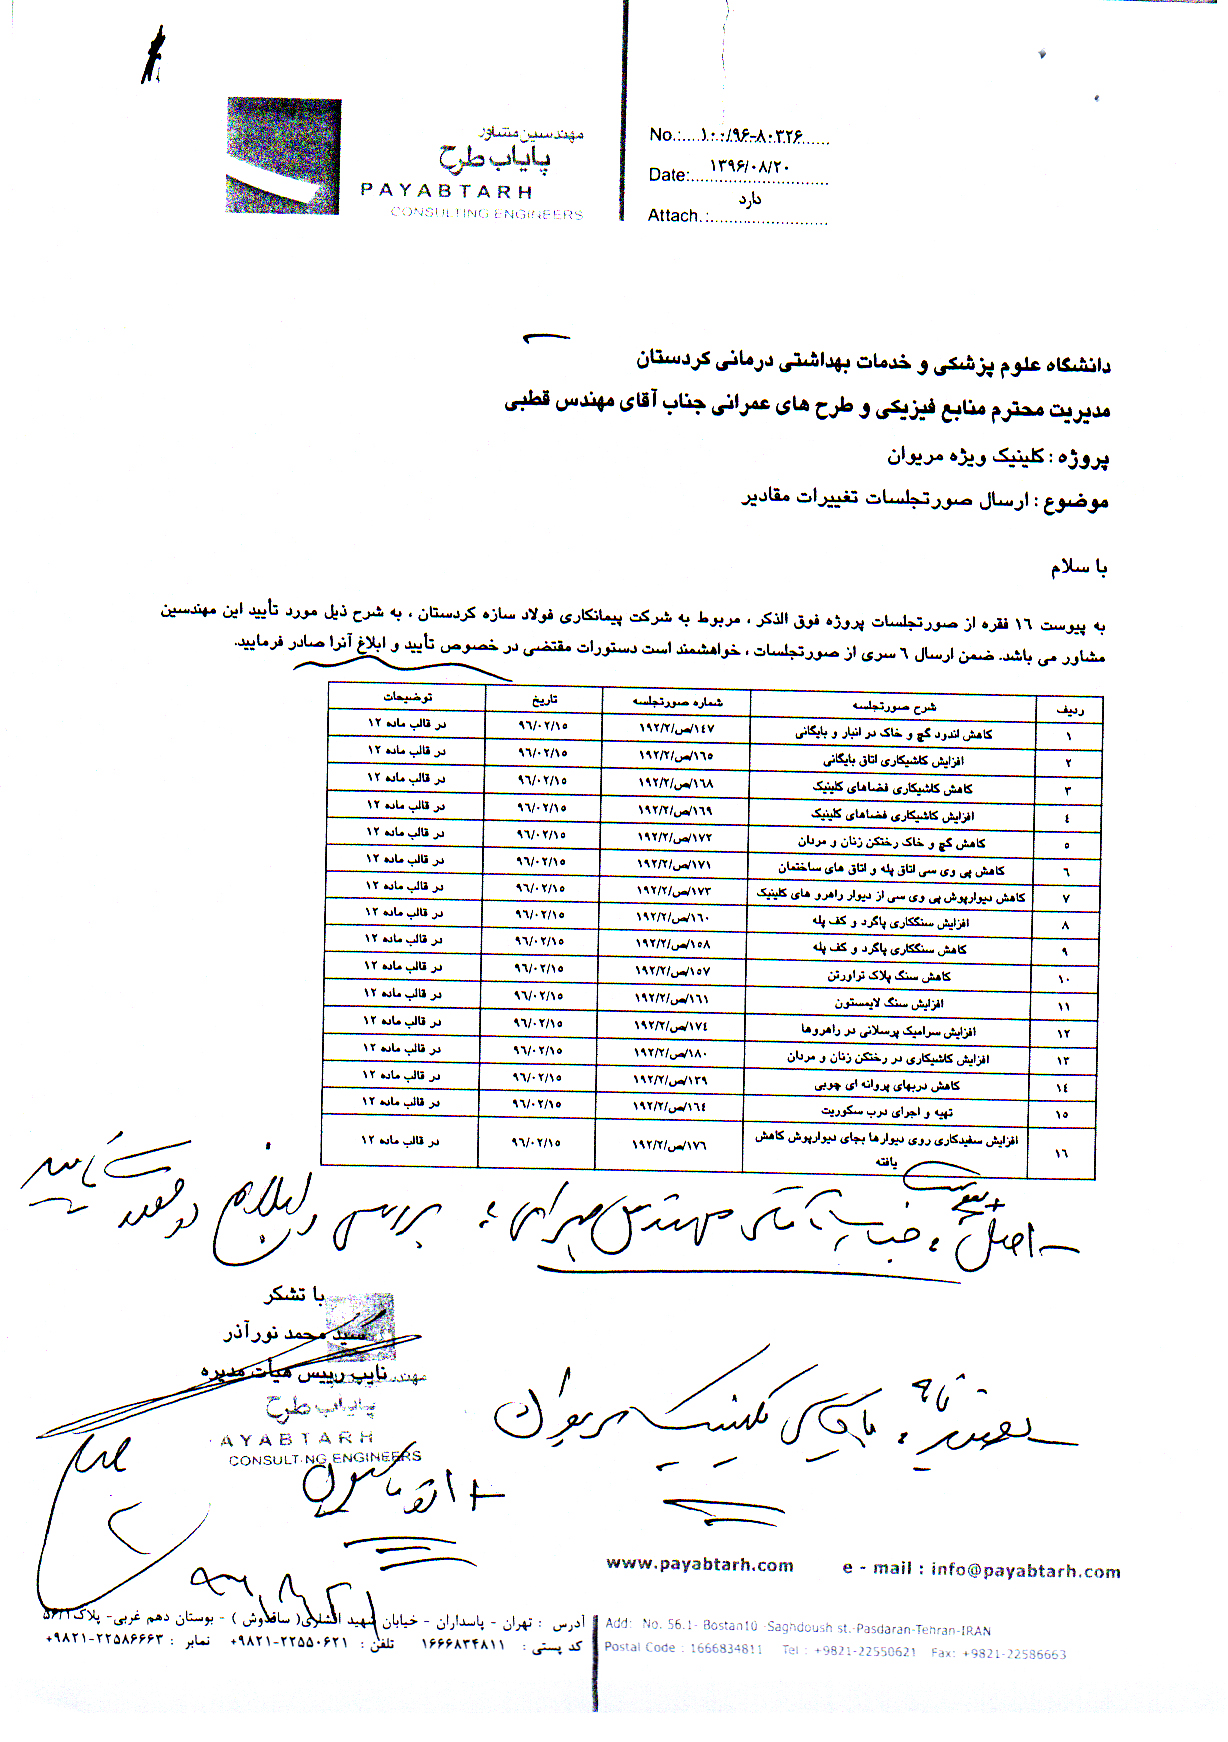 مهندسین مشاور
پایاب طرح
PAYABTARH
CONSULTING ENGINEERS
No.:....۱۰۰/۹۶-۸۰۳۲۶......
Date:...۱۳۹۶/۰۸/۲۰......
Attach.:...دارد......
دانشگاه علوم پزشکی و خدمات بهداشتی درمانی کردستان
مدیریت محترم منابع فیزیکی و طرح های عمرانی جناب آقای مهندس قطبی
پروژه : کلینیک ویژه مریوان
موضوع : ارسال صورتجلسات تغییرات مقادیر
با سلام
به پیوست ۱٦ فقره از صورتجلسات پروژه فوق الذکر ، مربوط به شرکت پیمانکاری فولاد سازه کردستان ، به شرح ذیل مورد تأیید این مهندسین
مشاور می باشد. ضمن ارسال ٦ سری از صورتجلسات ، خواهشمند است دستورات مقتضی در خصوص تأیید و ابلاغ آنرا صادر فرمایید.
ردیف شرح صورتجلسه شماره صورتجلسه تاریخ توضیحات
۱ کاهش اندود گچ و خاک در انبار و بایگانی ۱٤۷/ص/۱۹۲/۲ ۹٦/۰۲/۱۵ در قالب ماده ۱۲
۲ افزایش کاشیکاری اتاق بایگانی ۱٦۵/ص/۱۹۲/۲ ۹٦/۰۲/۱۵ در قالب ماده ۱۲
۳ کاهش کاشیکاری فضاهای کلینیک ۱٦۸/ص/۱۹۲/۲ ۹٦/۰۲/۱۵ در قالب ماده ۱۲
٤ افزایش کاشیکاری فضاهای کلینیک ۱٦۹/ص/۱۹۲/۲ ۹٦/۰۲/۱۵ در قالب ماده ۱۲
۵ کاهش گچ و خاک رختکن زنان و مردان ۱۷۲/ص/۱۹۲/۲ ۹٦/۰۲/۱۵ در قالب ماده ۱۲
٦ کاهش پی وی سی اتاق پله و اتاق های ساختمان ۱۷۱/ص/۱۹۲/۲ ۹٦/۰۲/۱۵ در قالب ماده ۱۲
۷ کاهش دیوارپوش پی وی سی از دیوار راهرو های کلینیک ۱۷۳/ص/۱۹۲/۲ ۹٦/۰۲/۱۵ در قالب ماده ۱۲
۸ افزایش سنگکاری پاگرد و کف پله ۱٦۰/ص/۱۹۲/۲ ۹٦/۰۲/۱۵ در قالب ماده ۱۲
۹ کاهش سنگکاری پاگرد و کف پله ۱۵۸/ص/۱۹۲/۲ ۹٦/۰۲/۱۵ در قالب ماده ۱۲
۱۰ کاهش سنگ پلاک تراورتن ۱۵۷/ص/۱۹۲/۲ ۹٦/۰۲/۱۵ در قالب ماده ۱۲
۱۱ افزایش سنگ لایمستون ۱٦۱/ص/۱۹۲/۲ ۹٦/۰۲/۱۵ در قالب ماده ۱۲
۱۲ افزایش سرامیک پرسلانی در راهروها ۱۷٤/ص/۱۹۲/۲ ۹٦/۰۲/۱۵ در قالب ماده ۱۲
۱۳ افزایش کاشیکاری در رختکن زنان و مردان ۱۸۰/ص/۱۹۲/۲ ۹٦/۰۲/۱۵ در قالب ماده ۱۲
۱٤ کاهش دربهای پروانه ای چوبی ۱۳۹/ص/۱۹۲/۲ ۹٦/۰۲/۱۵ در قالب ماده ۱۲
۱۵ تهیه و اجرای درب سکوریت ۱٦٤/ص/۱۹۲/۲ ۹٦/۰۲/۱۵ در قالب ماده ۱۲
۱٦ افزایش سفیدکاری روی دیوارها بجای دیوارپوش کاهش ۱۷٦/ص/۱۹۲/۲ ۹٦/۰۲/۱۵ در قالب ماده ۱۲
یافته
+ پیوست
- اصل : جناب آقای مهندس : بررسی و ابلاغ در صورت تایید
با تشکر
سید محمد نورآذر
نایب رییس هیأت مدیره
مهندسین
پایاب طرح
AYABTARH
CONSULTING ENGINEERS
کلینیک مریوان
+ اتوماسیون
www.payabtarh.com e - mail : info@payabtarh.com
آدرس : تهران - پاسداران - خیابان شهید افشاری( ساقدوش ) - بوستان دهم غربی- پلاک۵۶/۱
کد پستی : ۱۶۶۶۸۳۴۸۱۱ تلفن : ۲۲۵۵۰۶۲۱-۹۸۲۱+ نمابر : ۲۲۵۸۶۶۶۳-۹۸۲۱+
Add: No. 56.1- Bostan10 -Saghdoush st.-Pasdaran-Tehran-IRAN
Postal Code : 1666834811 Tel : +9821-22550621 Fax: +9821-22586663